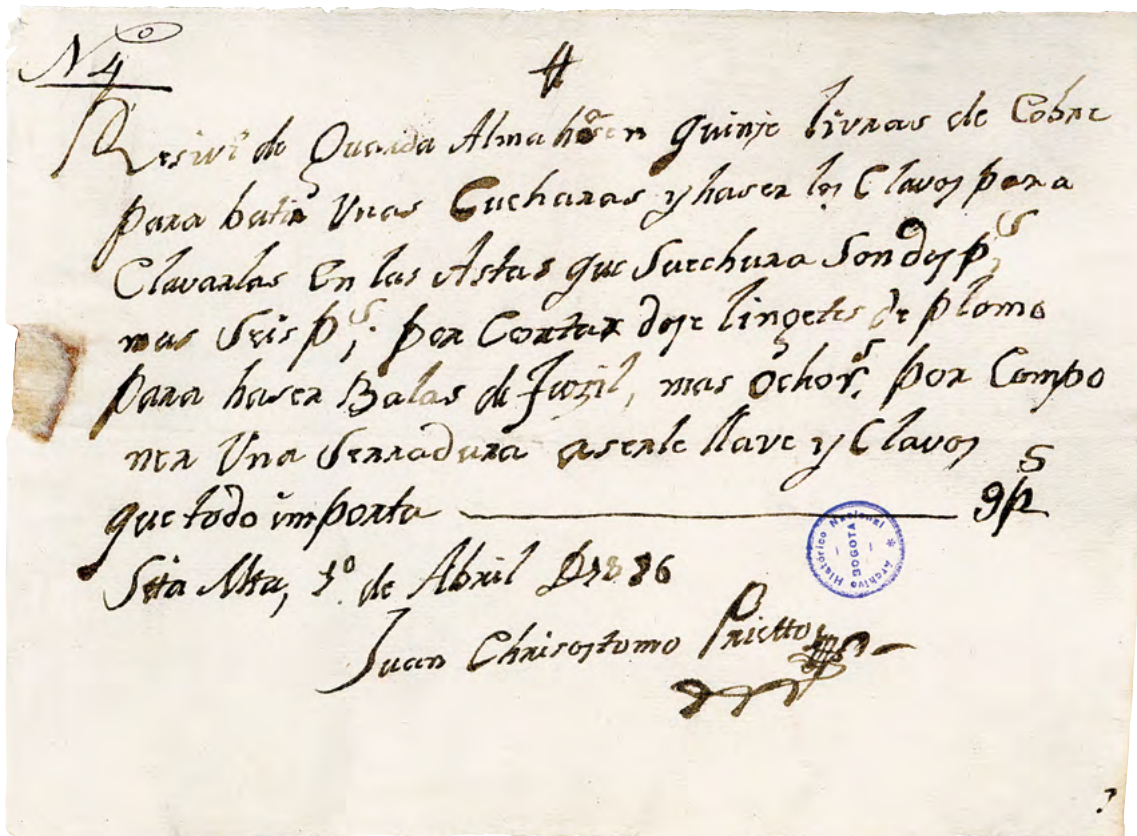 Nº 4
Resivi de Guarda Almahsen quinse livras de Cobre
para batir Unas Cucharas y haser los Clavos para
Clavarlas En las Astas que Suechura Son dos ps
mas Seis ps; por Cortar dose lingetes de plomo
para haser Balas de Fuzil, mas Ocho rs, por Compo
ner Una Serradura aserle llave y Clavos
que todo importa ——— 9 ps
Sta Mta, 1º de Abril D
Juan Chrisostomo Prietto
Archivo Histórico Nacional
BOGOTA